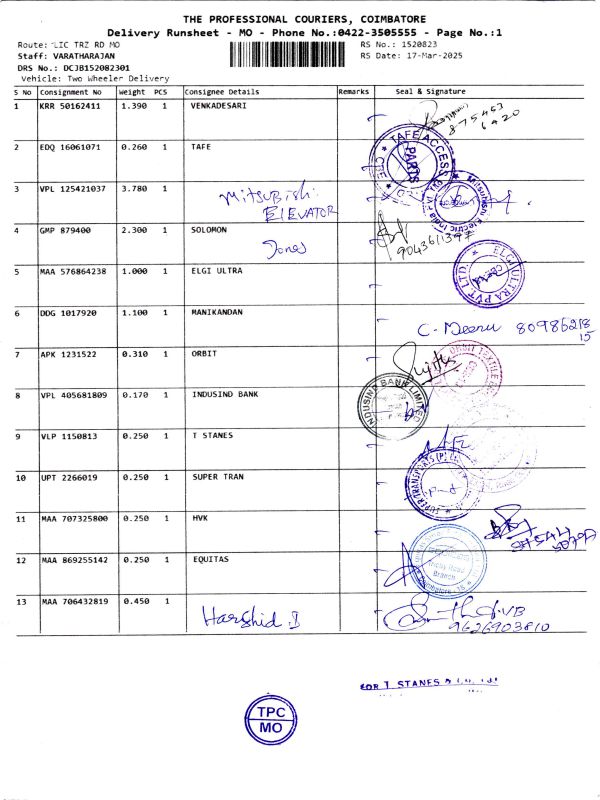 THE PROFESSIONAL COURIERS, COIMBATORE
Delivery Runsheet - MO - Phone No.:0422-3505555 - Page No.:1
Route: LIC TRZ RD MO
RS No.: 1520823
Staff: VARATHARAJAN
RS Date: 17-Mar-2025
DRS No.: DCJB152082301
Vehicle: Two Wheeler Delivery
S No Consignment No Weight PCS Consignee Details Remarks Seal & Signature
1 KRR 50162411 1.390 1 VENKADESARI
875463
6420
2 EDQ 16061071 0.260 1 TAFE
TAFE ACCESS
PARTS
CBE
3 VPL 125421037 3.780 1 Mitsubishi
ELEVATOR
Mitsubishi Electric India Pvt. Ltd
4 GMP 879400 2.300 1 SOLOMON
Jones
9043611397
5 MAA 576864238 1.000 1 ELGI ULTRA
ELGI ULTRA PVT LTD.
6 DDG 1017920 1.100 1 MANIKANDAN
C. Meenu 80986218
15
7 APK 1231522 0.310 1 ORBIT
ORBIT TEXTILE
8 VPL 405681809 0.170 1 INDUSIND BANK
INDUSIND BANK LIMITED
9 VLP 1150813 0.250 1 T STANES
10 UPT 2266019 0.250 1 SUPER TRAN
SUPER TRANSPORTS (P)
11 MAA 707325800 0.250 1 HVK
12 MAA 869255142 0.250 1 EQUITAS
Trichy Road
Branch
Coimbatore
13 MAA 706432819 0.450 1 Harshid. I
9626903810
FOR T. STANES &
TPC
MO